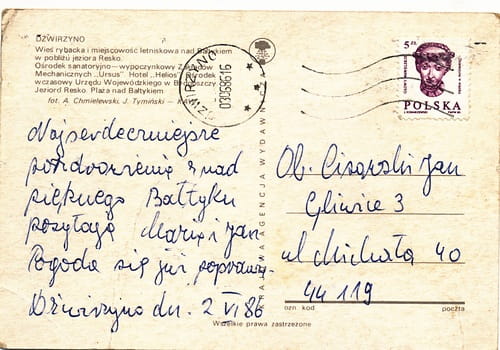 DŹWIRZYNO
Wieś rybacka i miejscowość letniskowa nad Bałtykiem
w pobliżu jeziora Resko.
Ośrodek sanatoryjno—wypoczynkowy Zakładów
Mechanicznych „Ursus" Hotel „Helios" Ośrodek
wczasowy Urzędu Wojewódzkiego w Bydgoszczy
Jeziord Resko. Plaża nad Bałtykiem
fot. A. Chmielewski, J. Tymiński — KAW
DŹWIRZYNO
030686 16
5 zł
POLSKA
KRAJOWA AGENCJA WYDAWNICZA
Najserdeczniejsze
pozdrowienia znad
pięknego Bałtyku
przesyłają Maria i Jan
Pogoda się już poprawia-
Dźwirzyno dn. 2 VI 86
Ob. Cisarski Jan
Gliwice 3
ul Michała 40
44 119
ozn kod
poczta
Wszelkie prawa zastrzeżone